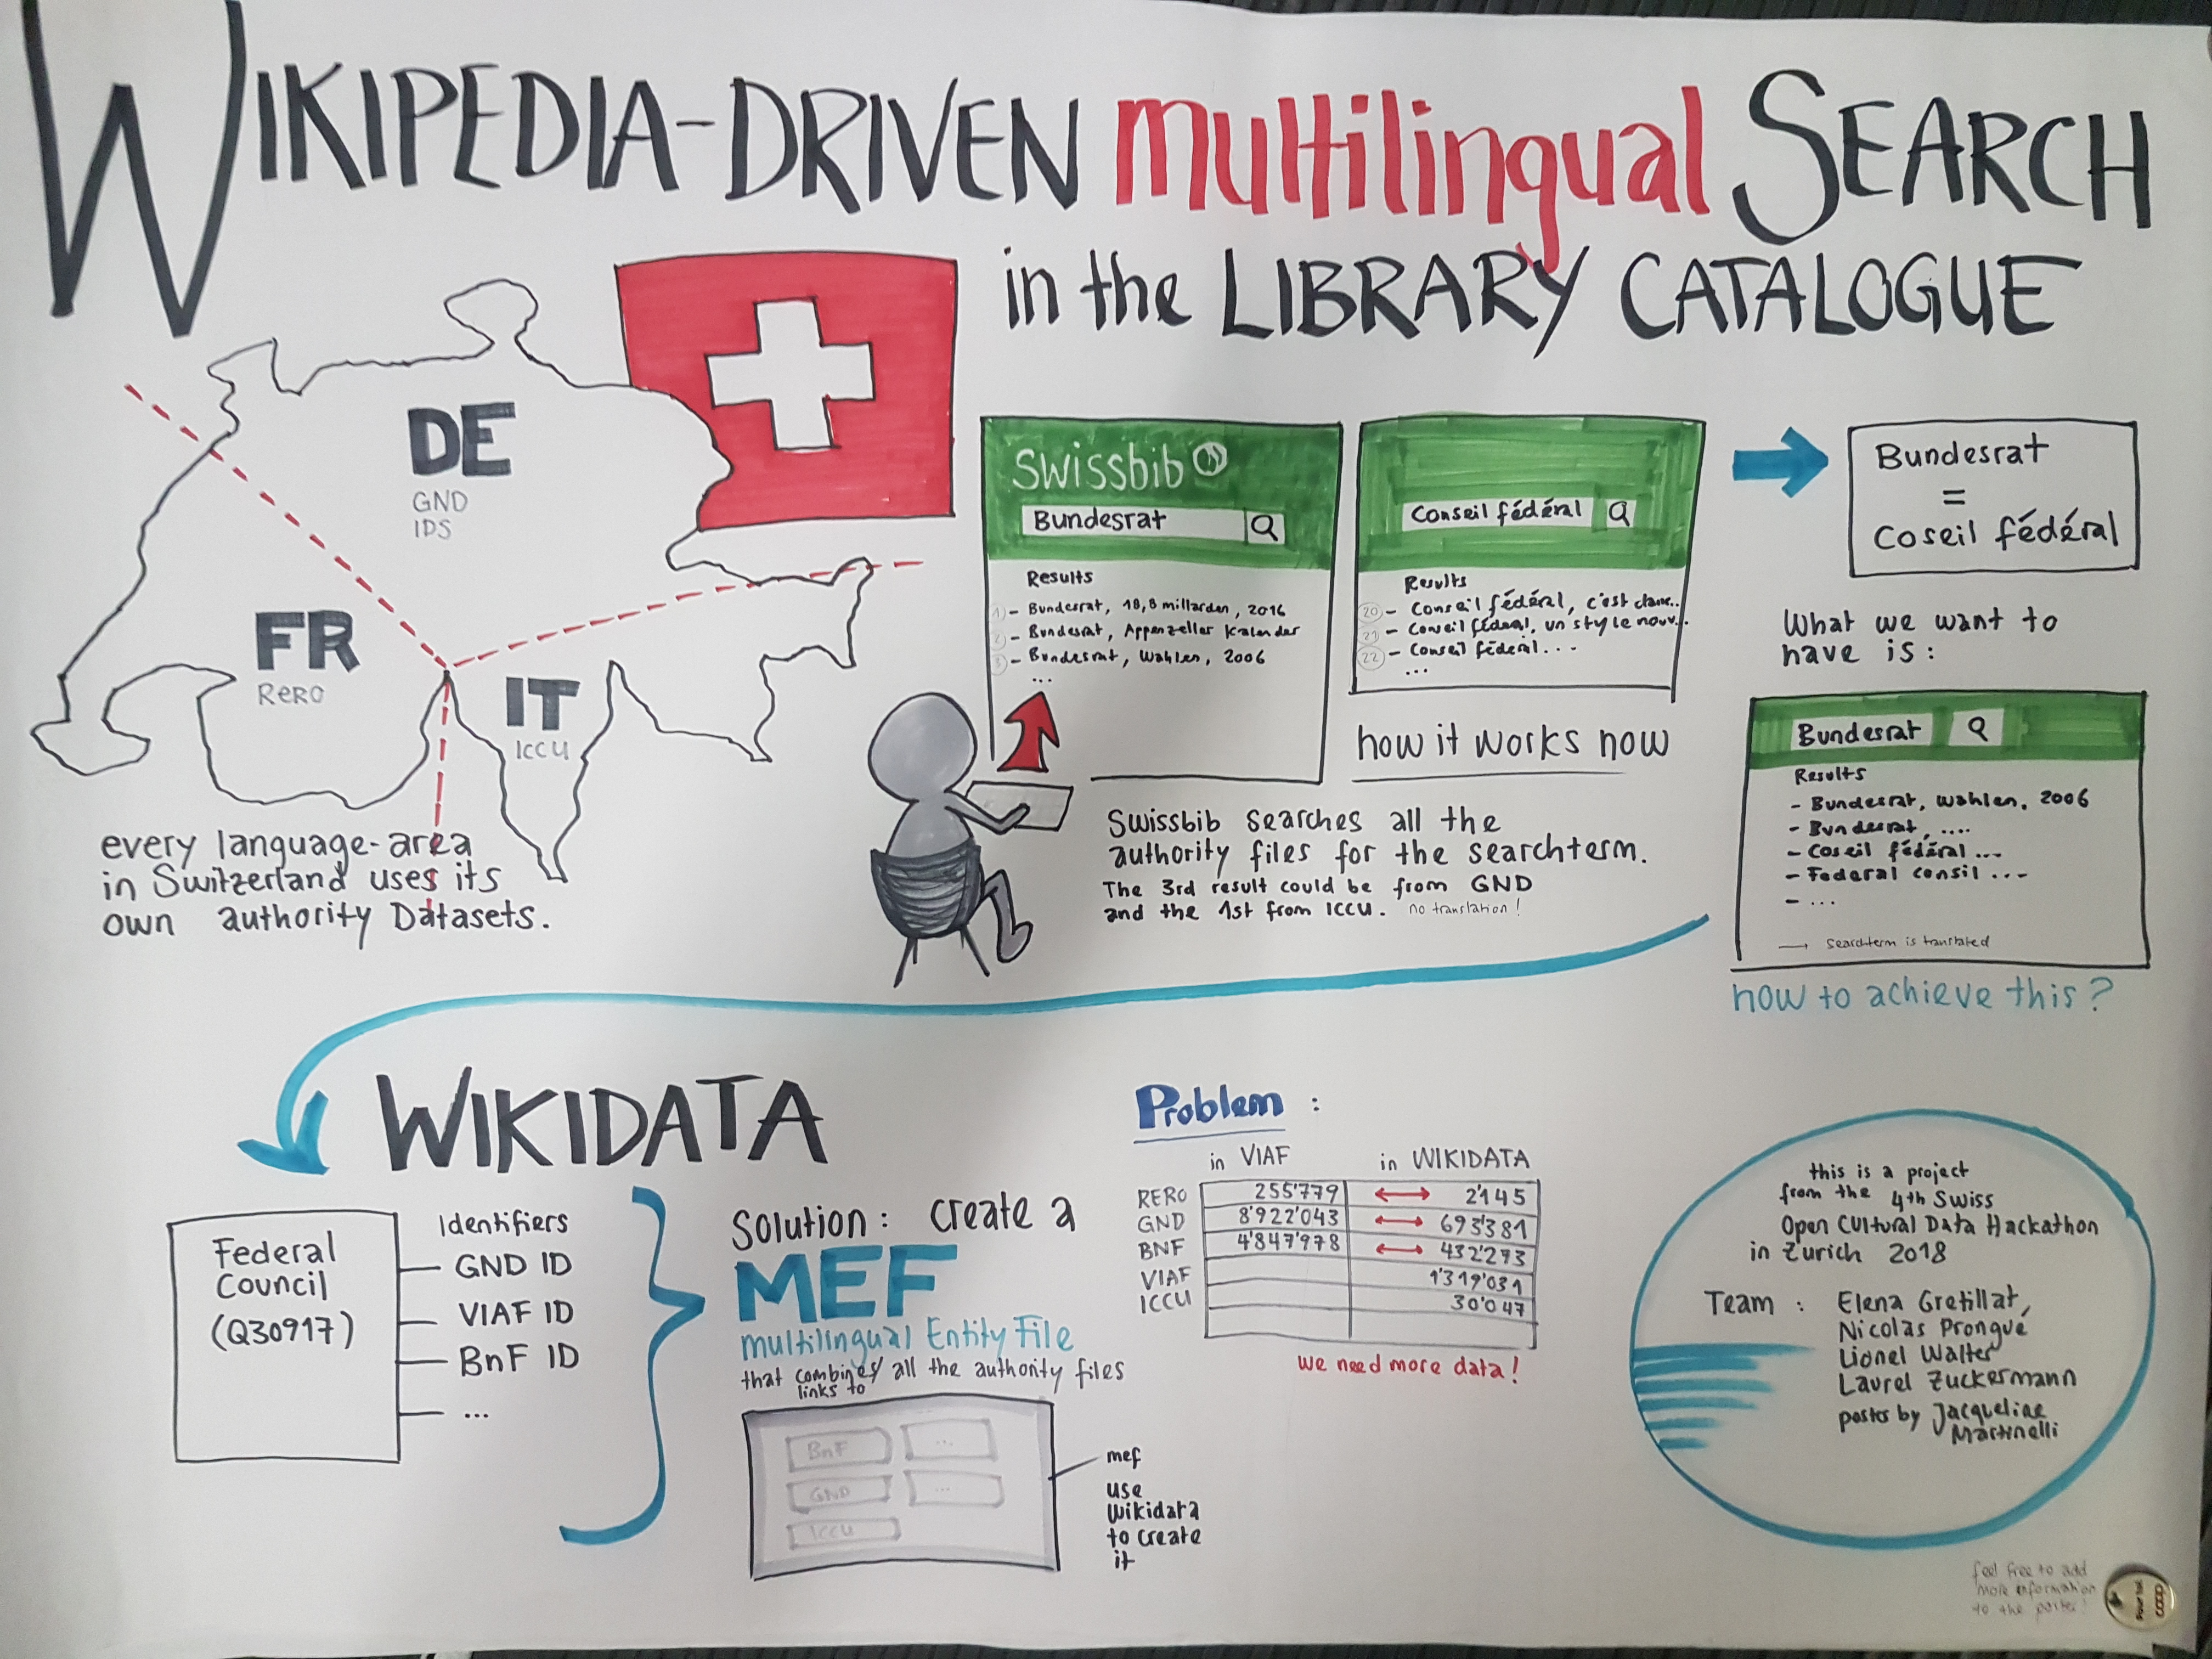 WIKIPEDIA-DRIVEN multilingual SEARCH
in the LIBRARY CATALOGUE
DE
GND
IDS
FR
RERO
IT
ICCU
every language-area
in Switzerland uses its
own authority Datasets.
swissbib
Bundesrat
Results
1) - Bundesrat, 18,8 millarden, 2016
2) - Bundesrat, Appenzeller Kalender
3) - Bundesrat, Wahlen, 2006
...
Conseil fédéral
Results
20 - Conseil fédéral, c'est dans..
21 - Conseil fédéral, un style nouv...
22 - Conseil fédéral...
...
how it works now
Swissbib searches all the
authority files for the searchterm.
The 3rd result could be from GND
and the 1st from ICCU. no translation!
Bundesrat
=
Coseil fédéral
What we want to
have is:
Bundesrat
Results
- Bundesrat, Wahlen, 2006
- Bundesrat, ....
- Coseil fédéral...
- Federal consil ...
- ...
→ Searchterm is translated
how to achieve this?
WIKIDATA
Federal
Council
(Q30917)
Identifiers
GND ID
VIAF ID
BnF ID
...
Solution: create a
MEF
multilingual Entity File
that combines/ all the authority files
links to
BnF
...
GND
...
ICCU
mef
use
Wikidata
to create
it
Problem:
in VIAF in WIKIDATA
RERO 255'779 ↔ 2'145
GND 8'922'043 ↔ 693'381
BNF 4'847'978 ↔ 432'273
VIAF 1'319'031
ICCU 30'047
we need more data!
this is a project
from the 4th Swiss
Open Cultural Data Hackathon
in Zurich 2018
Team: Elena Gretillat,
Nicolas Prongué
Lionel Walter
Laurel Zuckermann
poster by Jacqueline
Martinelli
feel free to add
more information
to the poster!
coop